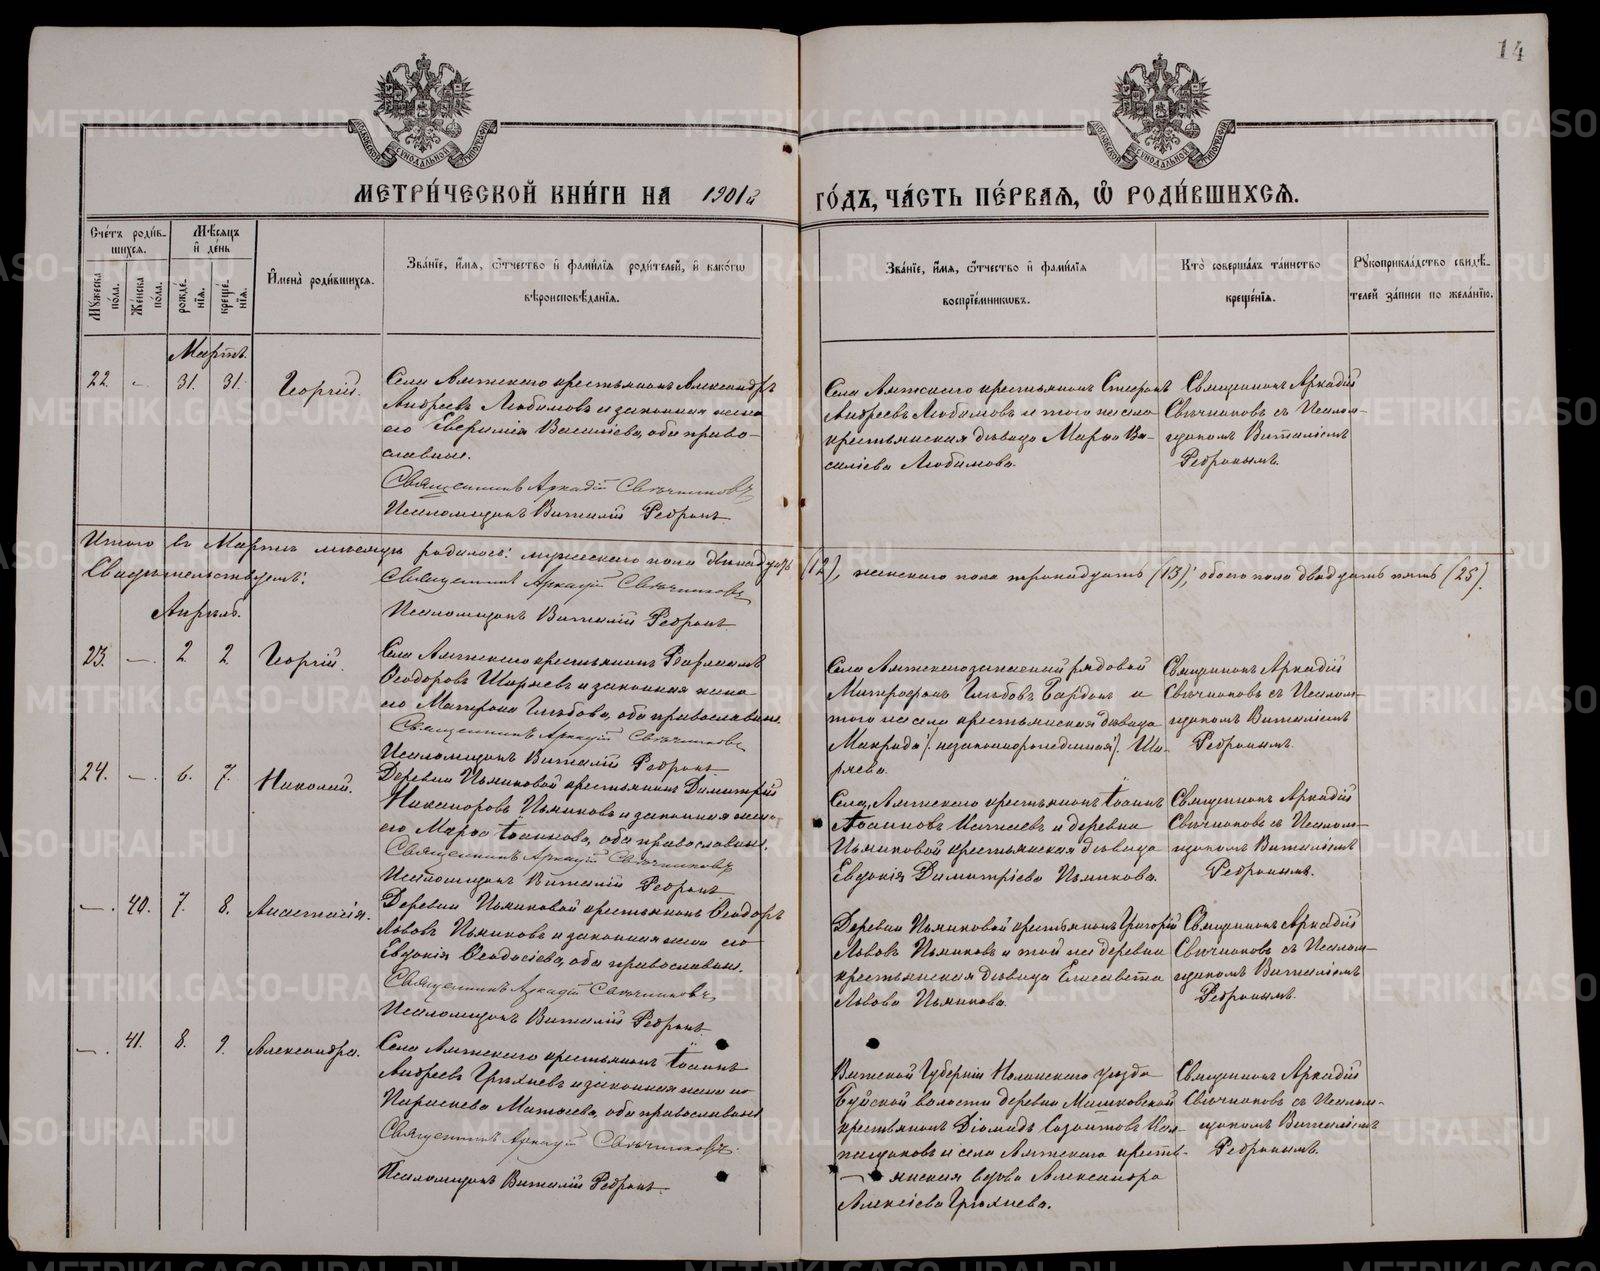 14
МЕТРИ́ЧЕСКОЙ КНИ́ГИ НА 1901й ГО́ДЪ, ЧА́СТЬ ПЕ́РВАЯ, Ѽ РОДИ́ВШИХСЯ.
Сче́тъ роди́вшихся.
Му́жеска по́ла.
Же́нска по́ла.
Мѣ́сяцъ и де́нь
рожде́нія.
креще́нія.
Имена̀ роди́вшихся.
Зва́ніе, и́мя, ѻ́тчество и фами́лія роди́телей, и како́гѡ вѣроисповѣ́данія.
Зва́ніе, и́мя, ѻ́тчество и фами́лія воспріе́мниковъ.
Кто̀ соверша́лъ та́инство креще́нія.
Рукоприкла́дство свидѣ́телей за́писи по жела́нію.
Мартъ.
22. — 31. 31. Георгій.
Села Аятскаго крестьянинъ Александръ
Андреевъ Любимовъ и законная жена
его Васильева, оба право-
славные.
Священникъ Аркадій Свѣчниковъ
Псаломщикъ Виталій Ребринъ
Села Аятскаго крестьянинъ
Андреевъ Любимовъ и того же села
крестьянская дѣвица Марѳа Ва-
силіева Любимова.
Священникъ Аркадій
Свѣчниковъ съ Псалом-
щикомъ Виталіемъ
Ребринымъ.
Итого въ Мартѣ мѣсяцѣ родилось: мужескаго пола двѣнадцать (12), женскаго пола тринадцать (13), обоего пола двадцать пять (25).
Свидѣтельствуемъ: Священникъ Аркадій Свѣчниковъ
Псаломщикъ Виталій Ребринъ
Апрѣль.
23. — 2 2 Георгій.
Села Аятскаго крестьянинъ
Ѳеодоровъ Ширяевъ и законная жена
его Матрона Глѣбова, оба православные.
Священникъ Аркадій Свѣчниковъ
Псаломщикъ Виталій Ребринъ
Села Аятскаго запасный рядовой
Митрофанъ Глѣбовъ и
того же села крестьянская дѣвица
Макрида /незаконнорожденная/ Ши-
ряева.
Священникъ Аркадій
Свѣчниковъ съ Псалом-
щикомъ Виталіемъ
Ребринымъ.
24. — 6. 7. Николай.
Деревни крестьянинъ Димитрій
Никаноровъ и законная жена
его Марѳа Іоаннова, оба православные.
Священникъ Аркадій Свѣчниковъ
Псаломщикъ Виталій Ребринъ
Села Аятскаго крестьянинъ Іоаннъ
Іоанновъ и деревни
крестьянская дѣвица
Евдокія Димитріева
Священникъ Аркадій
Свѣчниковъ съ Псалом-
щикомъ Виталіемъ
Ребринымъ.
— 40. 7. 8. Анастасія.
Деревни крестьянинъ Ѳеодоръ
Львовъ и законная жена его
Евдокія Ѳеодосіева, оба православные.
Священникъ Аркадій Свѣчниковъ
Псаломщикъ Виталій Ребринъ
Деревни крестьянинъ Григорій
Львовъ и той же деревни
крестьянская дѣвица Елисавета
Львова
Священникъ Аркадій
Свѣчниковъ съ Псалом-
щикомъ Виталіемъ
Ребринымъ.
— 41. 8. 9. Александра.
Села Аятскаго крестьянинъ Іоаннъ
Андреевъ и законная жена его
Параскева Матѳеева, оба православные
Священникъ Аркадій Свѣчниковъ
Псаломщикъ Виталій Ребринъ
Вятской Губерніи Нолинскаго уѣзда
Буйской волости деревни Машковской
крестьянинъ Діомидъ
и села Аятскаго кресть-
янская вдова Александра
Алексіева
Священникъ Аркадій
Свѣчниковъ съ Псалом-
щикомъ Виталіемъ
Ребринымъ.
METRIKI.GASO-URAL.RU